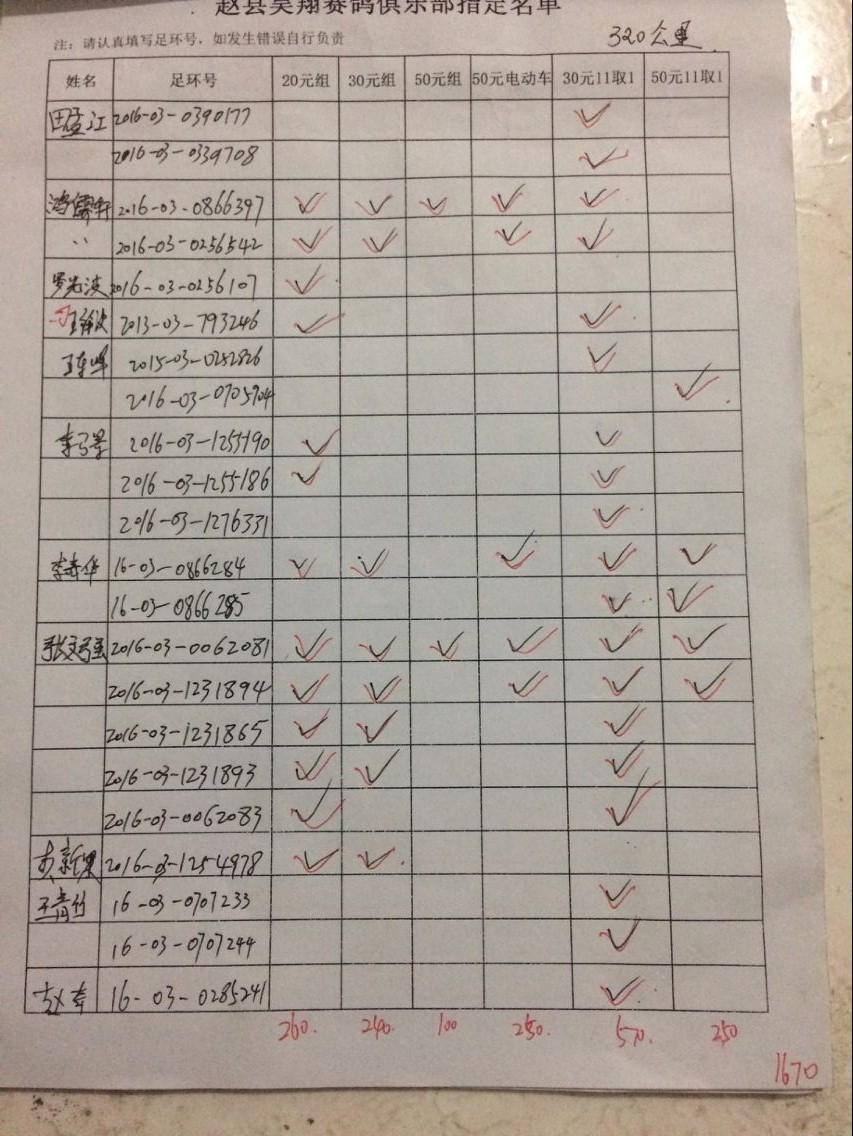 赵县昊翔赛鸽俱乐部指定名单
注：请认真填写足环号，如发生错误自行负责 320公里
姓名 足环号 20元组 30元组 50元组 50元电动车 30元11取1 50元11取1
田孟江 2016-03-0390177 ✓
2016-03-0339708 ✓
鸿儒轩 2016-03-0866397 ✓ ✓ ✓ ✓ ✓
〃 2016-03-0256542 ✓ ✓ ✓ ✓
罗光波 2016-03-0256107 ✓
2013-03-793246 ✓ ✓
王东峰 2015-03-0252826 ✓
2016-03-0705904 ✓
2016-03-1255190 ✓ ✓
2016-03-1255186 ✓ ✓
2016-03-1276331 ✓
李春华 16-03-0866284 ✓ ✓ ✓ ✓ ✓
16-03-0866285 ✓ ✓
2016-03-0062081 ✓ ✓ ✓ ✓ ✓ ✓
2016-03-1231894 ✓ ✓ ✓ ✓ ✓
2016-03-1231865 ✓ ✓ ✓
2016-03-1231893 ✓ ✓ ✓
2016-03-0062083 ✓ ✓
2016-03-1254978 ✓ ✓
王青竹 16-03-0707233 ✓
16-03-0707244 ✓
16-03-0285241 ✓
260. 240. 100 250. 570. 250
1670